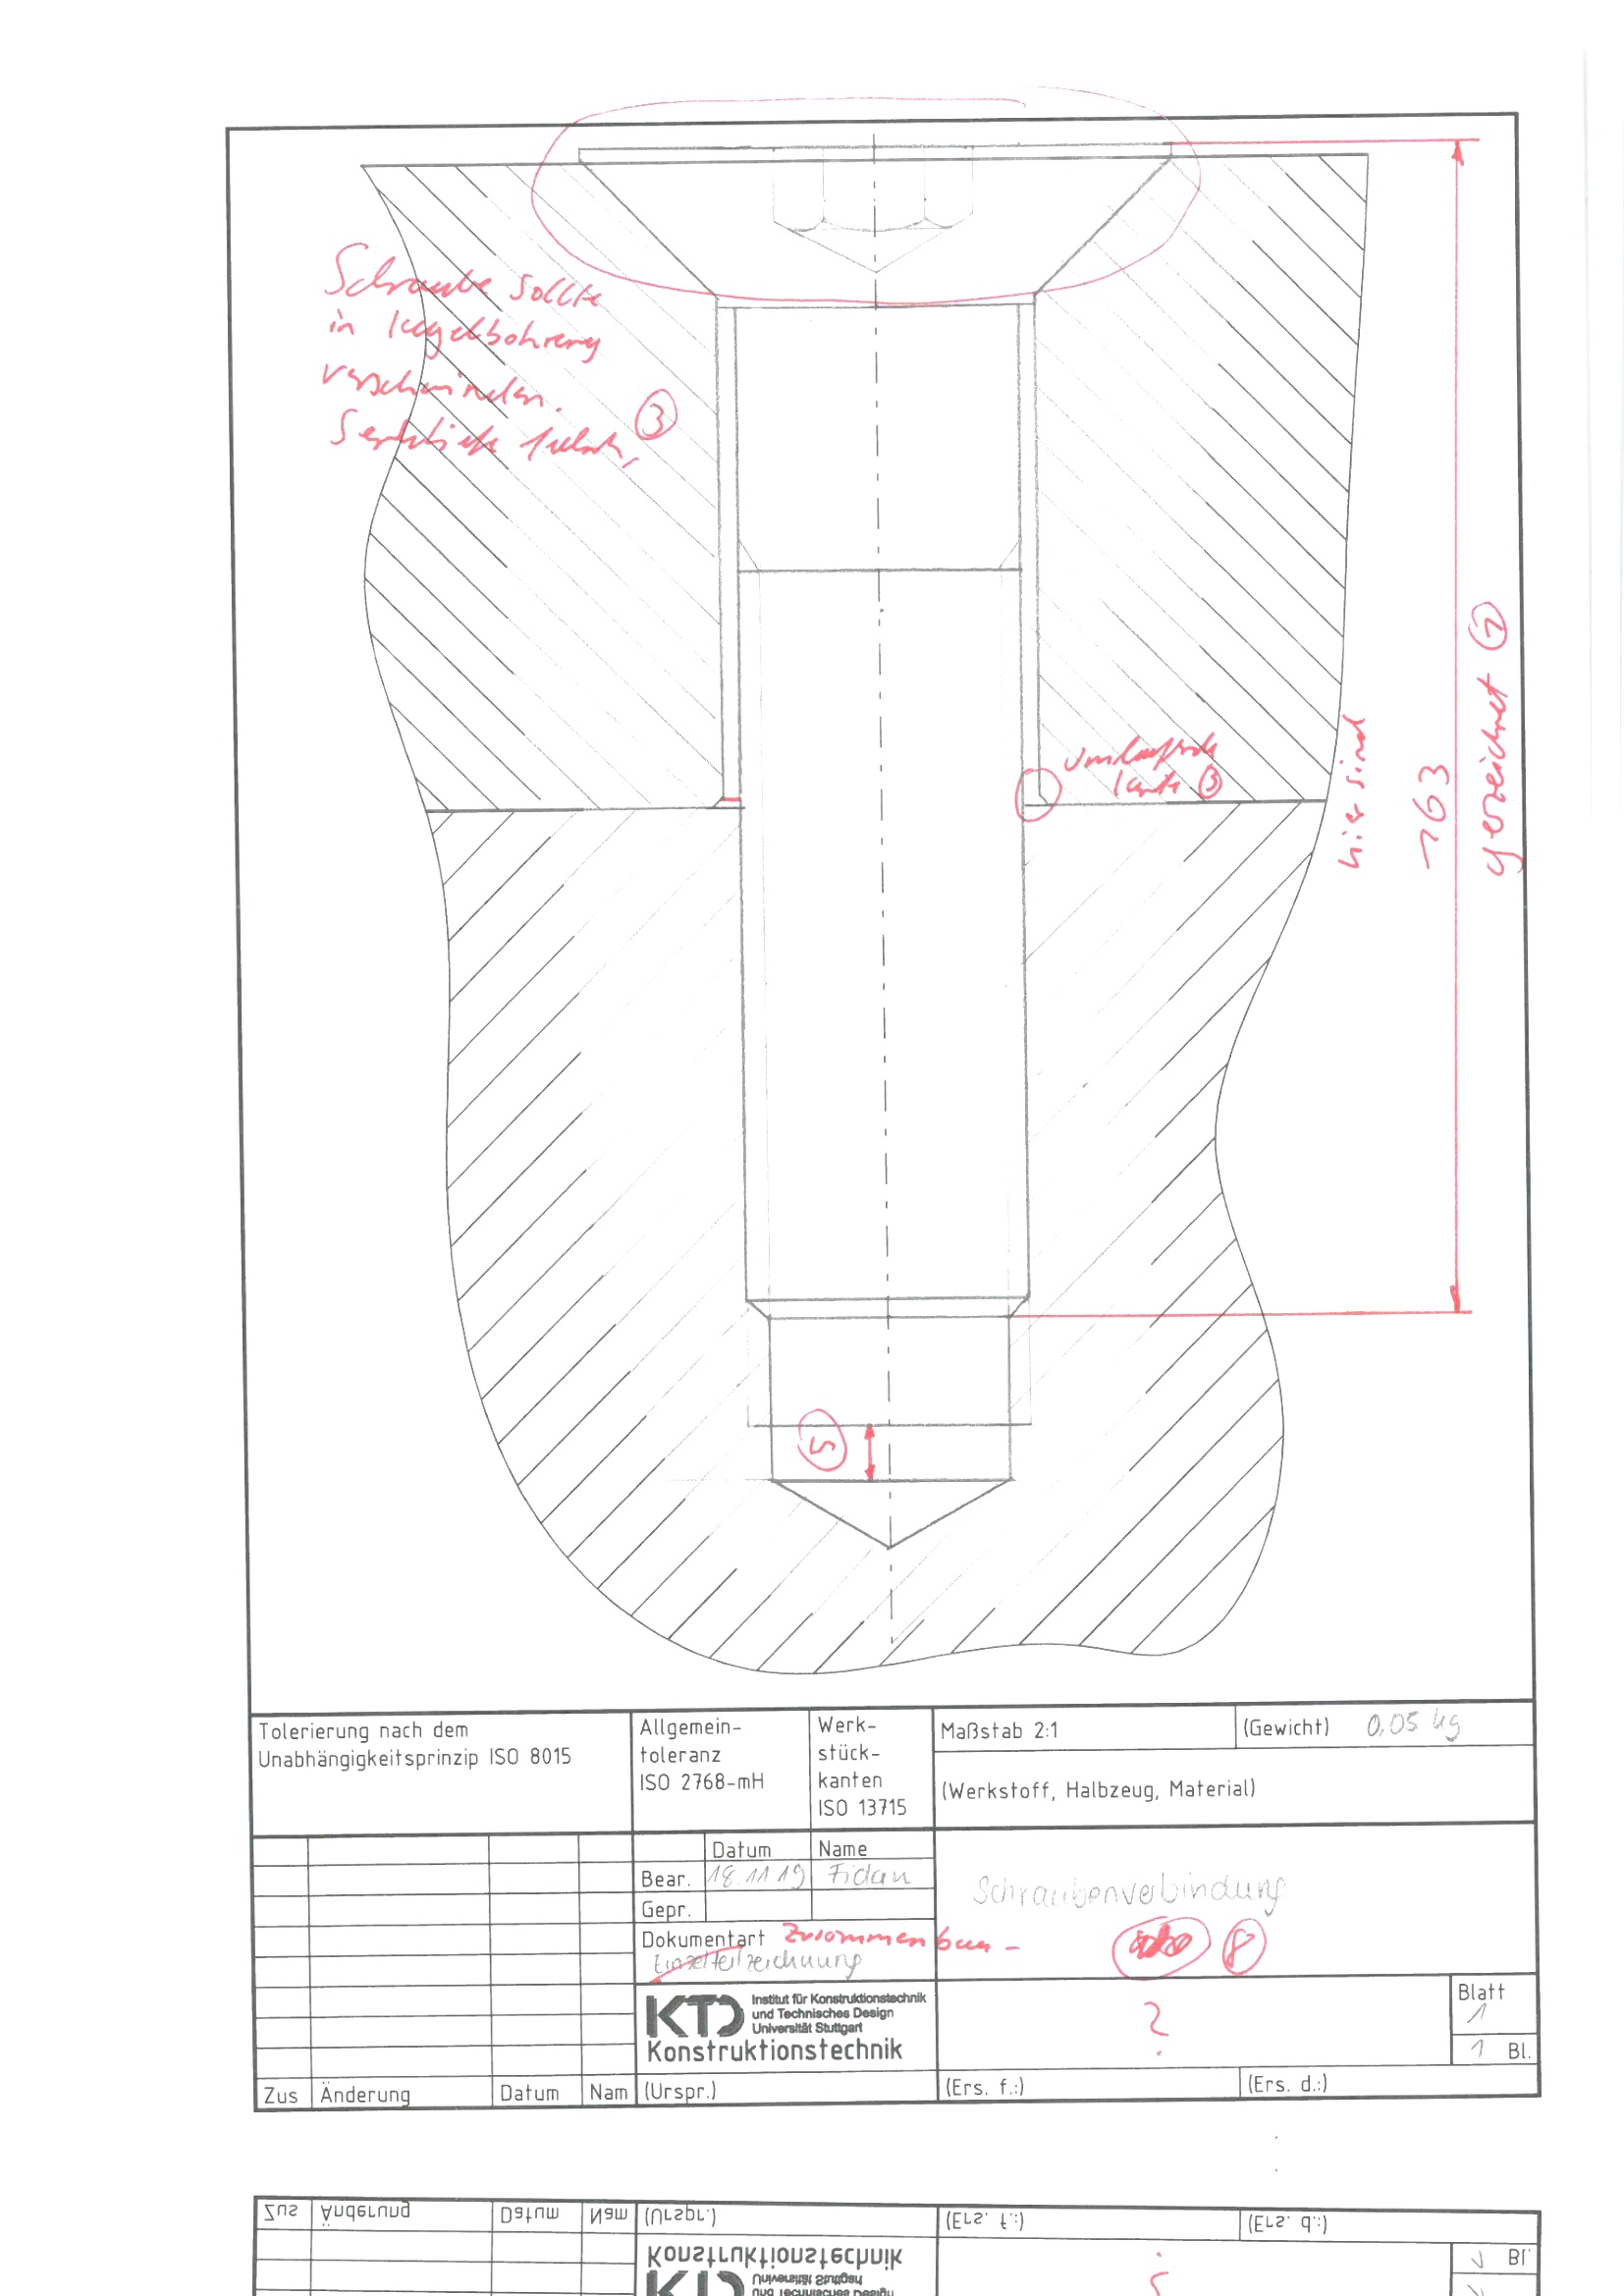 Schraube sollte
in Kegelbohrung
verschwinden.
Senktiefe falsch, ③
Umlaufende
Kante ③
hier sind
~63
gezeichnet ⑦
⑤
Tolerierung nach dem
Unabhängigkeitsprinzip ISO 8015
Allgemein-
toleranz
ISO 2768-mH
Werk-
stück-
kanten
ISO 13715
Maßstab 2:1
(Gewicht) 0,05 kg
(Werkstoff, Halbzeug, Material)
Datum Name
Bear. 18.11.19 Fidan
Gepr.
Schraubenverbindung
Dokumentart Zusammenbau-
Einzelteilzeichnung
⑧
KTD Institut für Konstruktionstechnik
und Technisches Design
Universität Stuttgart
Konstruktionstechnik
?
Blatt
1
1 Bl.
Zus Änderung Datum Nam (Urspr.) (Ers. f.:) (Ers. d.:)
Zus Änderung Datum Nam (Urspr.) (Ers. f.:) (Ers. d.:)
Konstruktionstechnik
Bl.